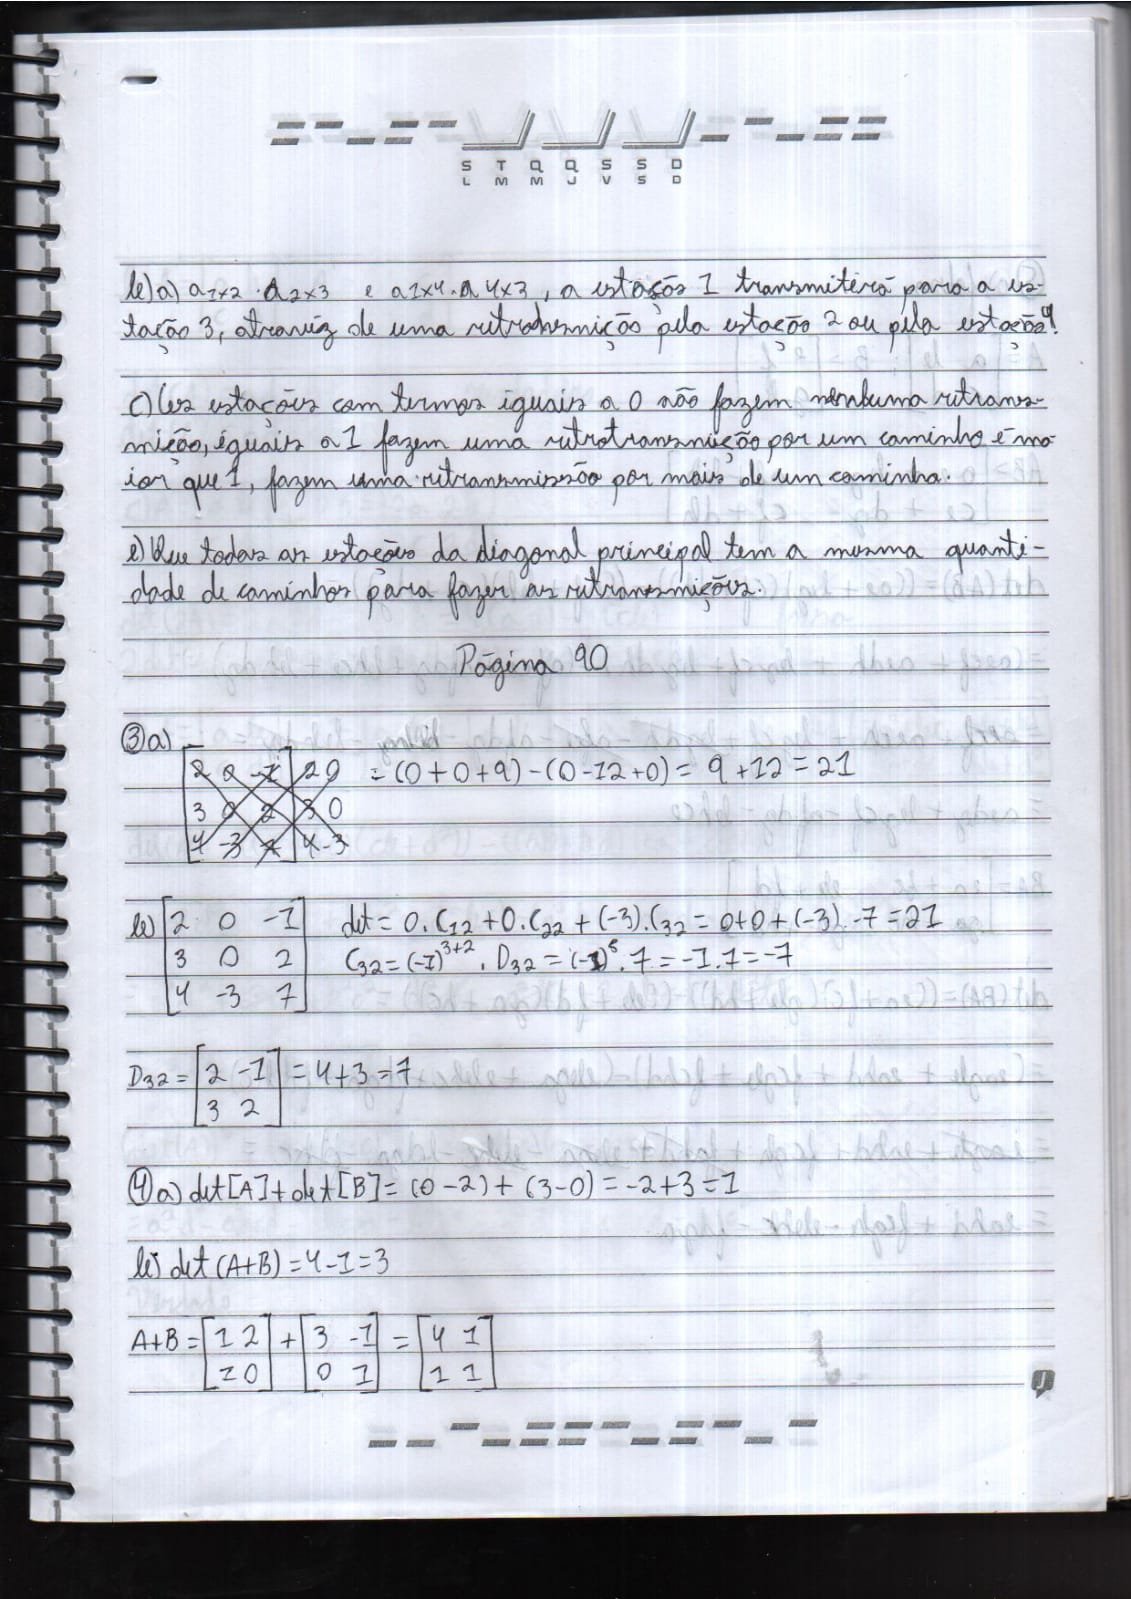 S T Q Q S S D
L M M J V S D
b) a) a1x2 . a2x3 e a1x4 . a4x3, a estação 1 transmiterá para a es-
tação 3, atravéz de uma retrohmição pela estação 2 ou pela estação 4.
c) Les estações com termos iguais a 0 não fazem nenhuma retrans-
mição, iguais a 1 fazem uma retrotransmição por um caminho e ma-
ior que 1, fazem uma retransmissão por mais de um caminho.
e) Que todas as estações da diagonal principal tem a mesma quanti-
dade de caminhos para fazer as retransmições.
Página 90
③ a)
[2 0 -1] 2 0 = (0+0+9)-(0-12+0) = 9+12 = 21
3 0 2 3 0
4 -3 7 4 -3
b) [2 0 -1] det = 0.C12 + 0.C22 + (-3).C32 = 0+0+(-3).-7 = 21
3 0 2 C32 = (-1)³⁺² . D32 = (-1)⁵ . 7 = -1.7 = -7
4 -3 7
D32 = [2 -1] = 4+3 = 7
3 2
④ a) det[A] + det[B] = (0-2) + (3-0) = -2+3 = 1
b) det (A+B) = 4-1 = 3
A+B = [1 2] + [3 -1] = [4 1]
1 0 0 1 1 1